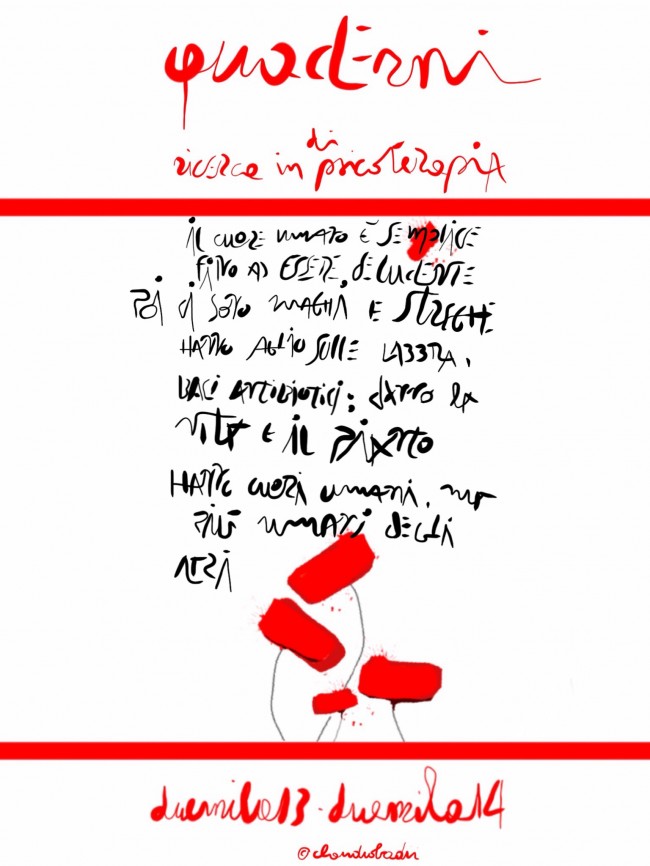 quaderni
di
ricerca in psicoterapia
il cuore umano è semplice
fino ad essere deludente
poi ci sono maghi e streghe
hanno aglio sulle labbra,
baci antibiotici; danno la
vita e il pianto
hanno cuori umani, ma
più umani degli
altri
duemila13-duemila14